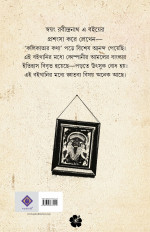 স্বয়ং রবীন্দ্রনাথ এ বইয়ের
প্রশংসা করে লেখেন—
'কলিকাতার কথা' পড়ে বিশেষ আনন্দ পেয়েছি।
এই বইখানির মধ্যে কোম্পানীর আমলের বাংলার
ইতিহাস বিবৃত হয়েছে—পড়তে উৎসুক বোধ হয়।
এই বইখানির মধ্যে জ্ঞাতব্য বিষয় অনেক আছে।